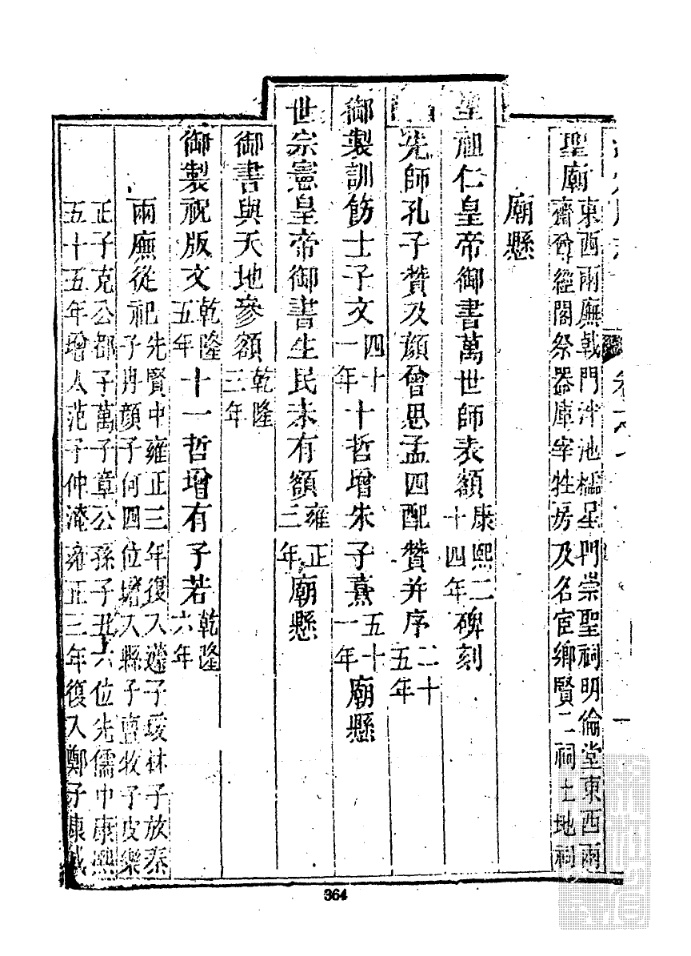 卷
聖廟東西兩廡戟門泮池櫺星門崇聖祠明倫堂東西兩
齋尊經閣祭器庫宰牲房及名宦鄉賢二祠土地祠
廟懸
聖祖仁皇帝御書萬世師表額康熙二十四年碑刻
先師孔子贊及顏曾思孟四配贊并序二十五年
御製訓飭士子文四十一年十哲增朱子熹五十一年廟懸
世宗憲皇帝御書生民未有額雍正三年廟懸
御書與天地參額乾隆三年
御製祝版文乾隆五年十一哲增有子若乾隆六年
兩廡從祀先賢中雍正三年復入蘧子瑗林子放秦
子冉顏子何四位增入縣子亶牧子皮樂
正子克公都子萬子章公孫子丑六位先儒中康熙
五十五年增入范子仲淹雍正三年復入鄭子康成
364